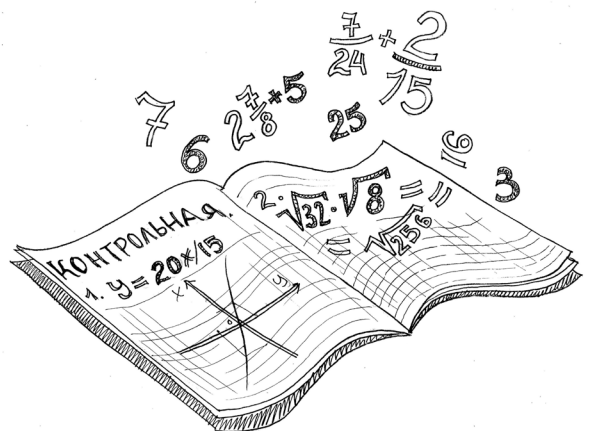 7/24 + 2/15
7
6
2 7/8 + 5
25
16
3
КОНТРОЛЬНАЯ.
1. y = 20x/15
x
y
0
2. √32 · √8 =
= √256 =